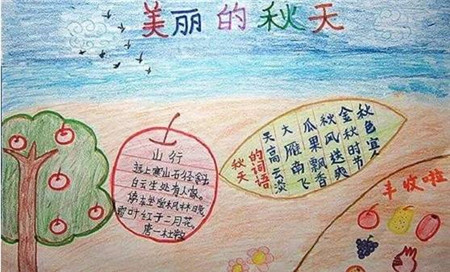 美丽的秋天
山行
远上寒山石径斜
白云生处有人家。
停车坐爱枫林晚
霜叶红于二月花。
唐—杜牧
秋天
的词语
天高云淡
大雁南飞
瓜果飘香
秋风送爽
金秋时节
秋色宜人
丰收啦